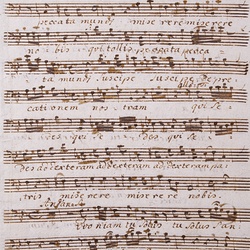 peccata mundi miserere miserere
nobis qui tollis peccata pecca
ta mundi suscipe suscipe depre
cationem nostram qui se
des qui se des qui se
des ad dexteram ad dexteram pa
tris miserere miserere nobis
quoniam tu solus tu solus San